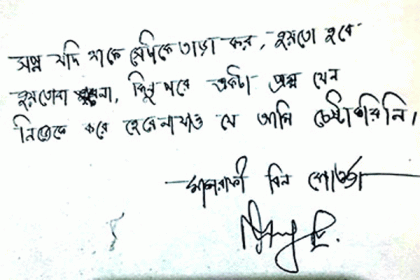 স্বপ্ন যদি থাকে সেটাকে তাড়া কর, হয়তো হবে
হয়তোবা হবেনা, কিন্তু পরে একটা প্রশ্ন যেন
নিজেকে করে হেরে না যাও যে আমি চেষ্টা করিনি।
মাশরাফী বিন মোর্ত্তজা